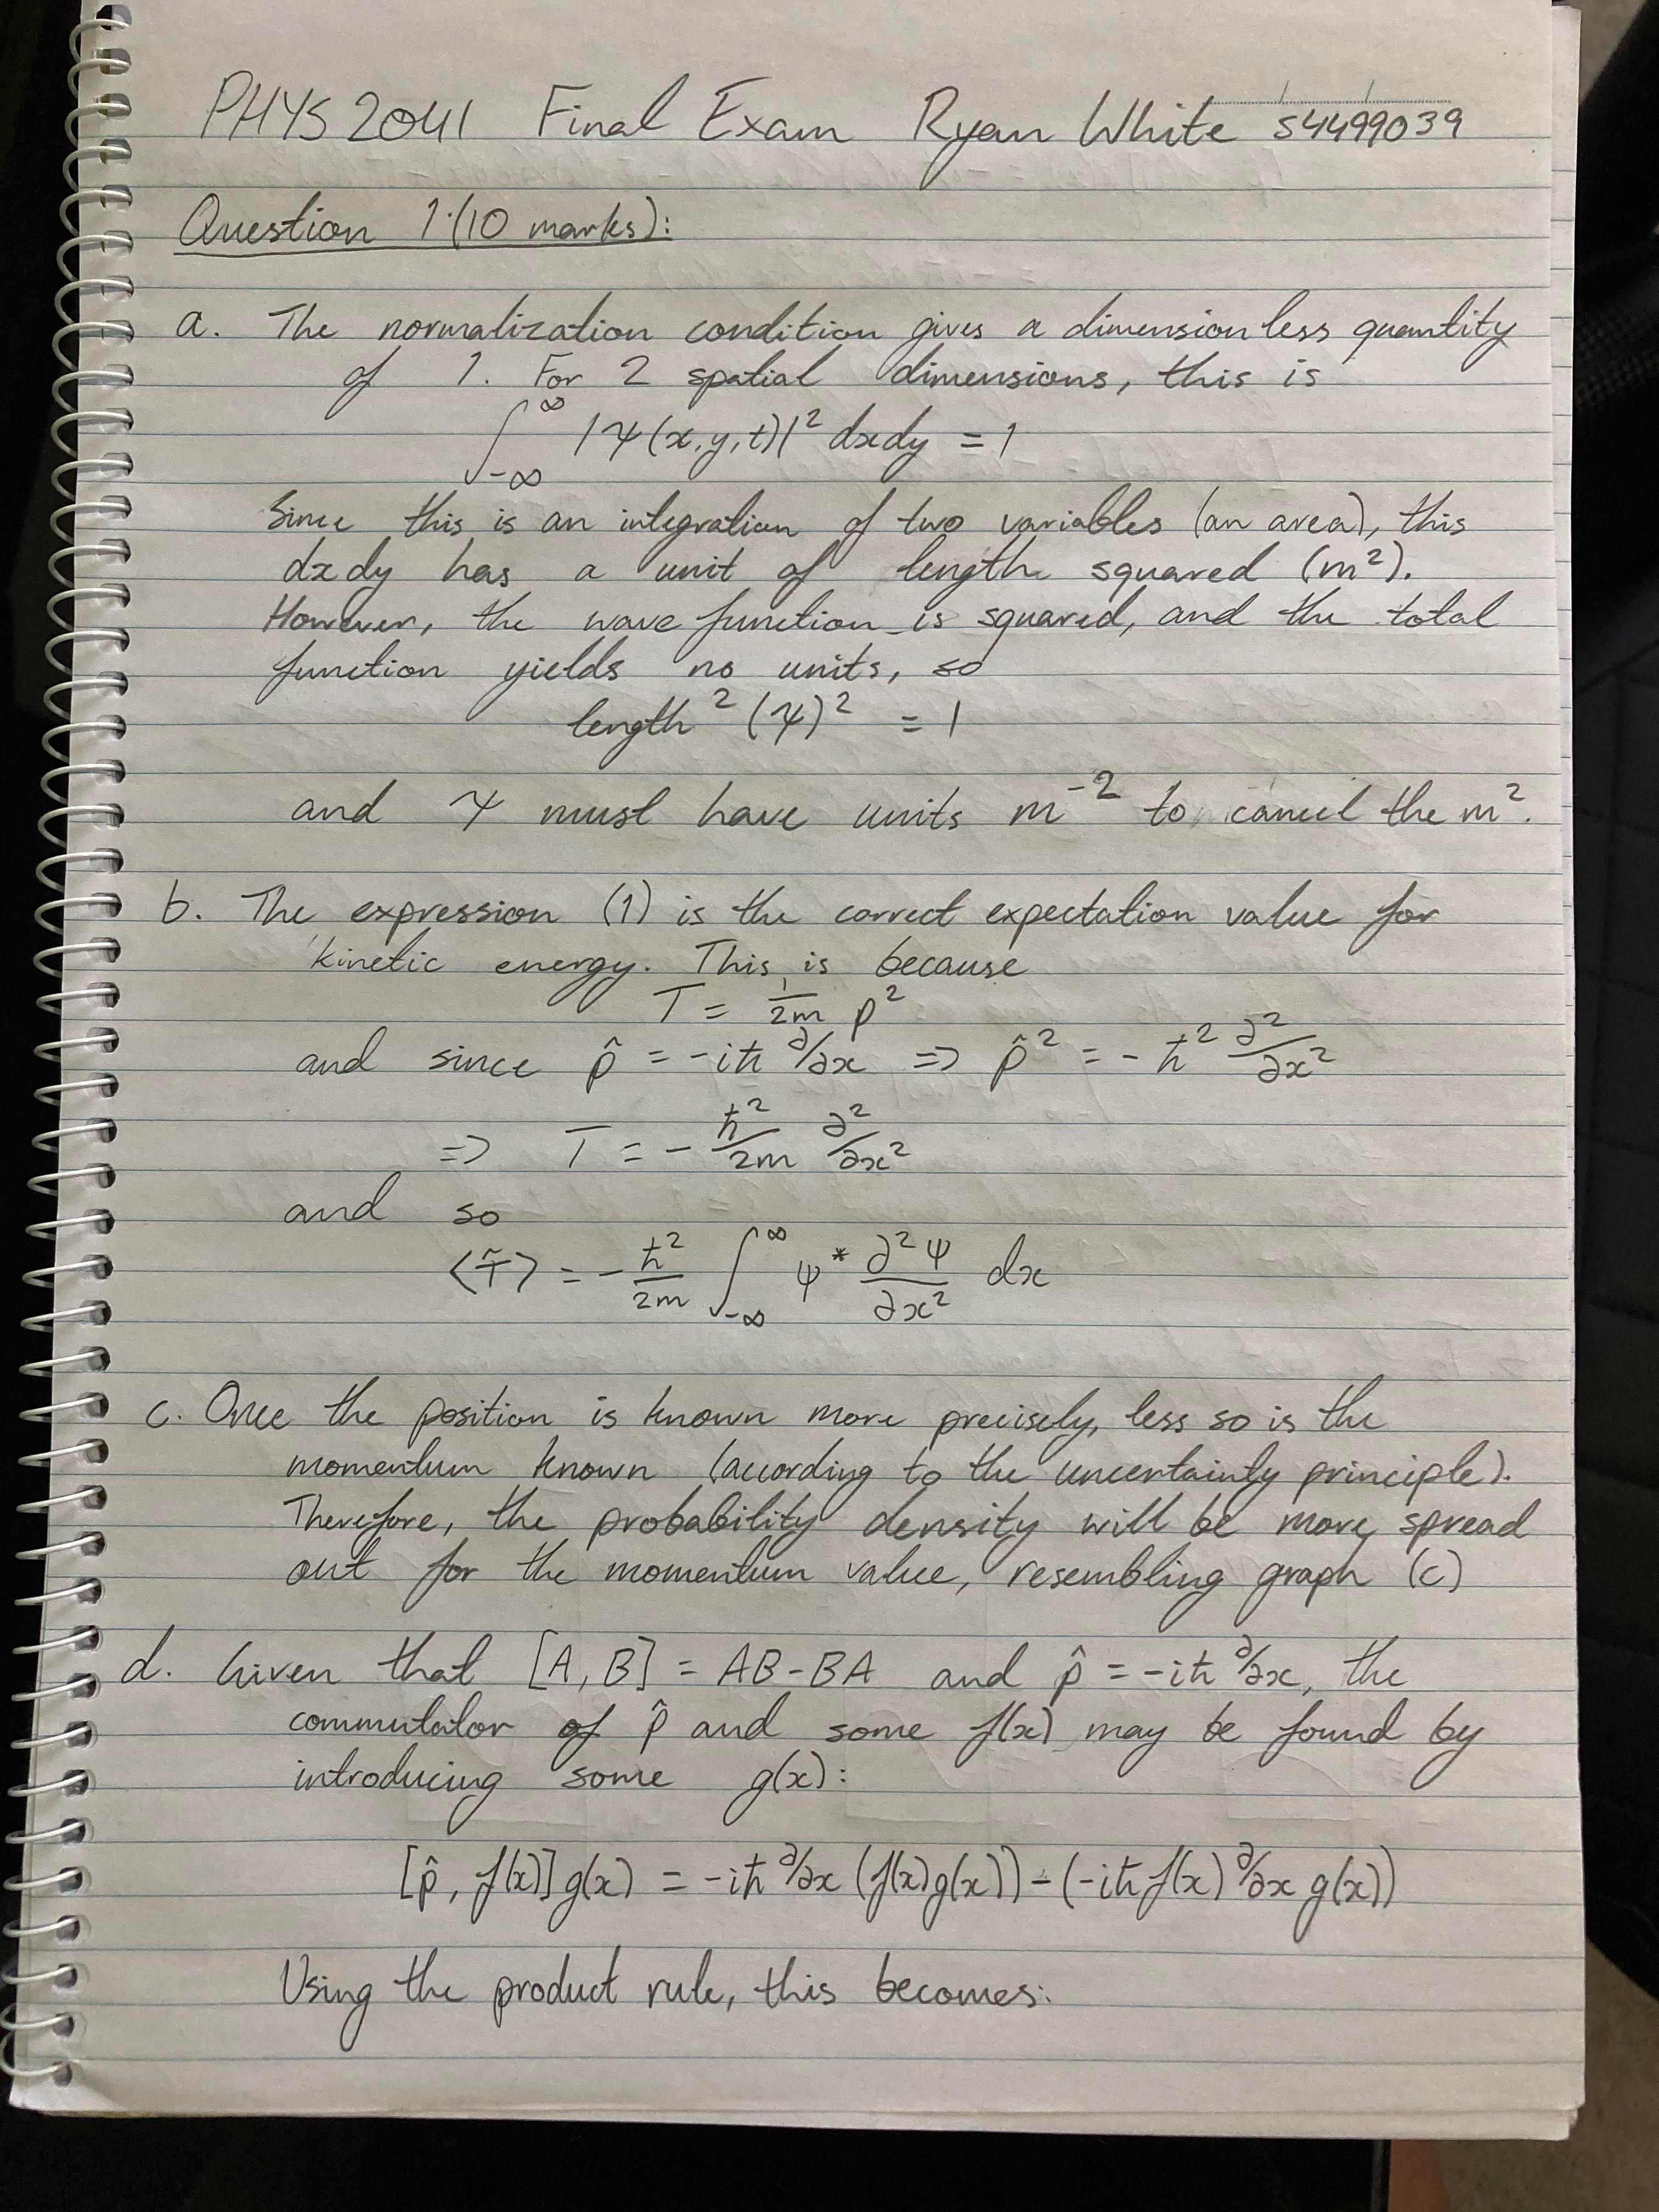 PHYS2041 Final Exam Ryan White s4499039
Question 1 (10 marks):
a. The normalization condition gives a dimensionless quantity
of 1. For 2 spatial dimensions, this is
∫_{-∞}^{∞} |Ψ(x,y,t)|² dxdy = 1
Since this is an integration of two variables (an area), this
dxdy has a unit of length squared (m²).
However, the wave function is squared, and the total
function yields no units, so
length² (Ψ)² = 1
and Ψ must have units m⁻² to cancel the m².
b. The expression (1) is the correct expectation value for
kinetic energy. This is because
T = 1/2m p²
and since p̂ = -iħ ∂/∂x => p̂² = -ħ² ∂²/∂x²
=> T = -ħ²/2m ∂²/∂x²
and so
⟨T̂⟩ = -ħ²/2m ∫_{-∞}^{∞} Ψ* ∂²Ψ/∂x² dx
c. Once the position is known more precisely, less so is the
momentum known (according to the uncertainty principle).
Therefore, the probability density will be more spread
out for the momentum value, resembling graph (c)
d. Given that [A, B] = AB-BA and p̂ = -iħ ∂/∂x, the
commutator of p̂ and some f(x) may be found by
introducing some g(x):
[p̂, f(x)]g(x) = -iħ ∂/∂x (f(x)g(x)) - (-iħf(x) ∂/∂x g(x))
Using the product rule, this becomes: